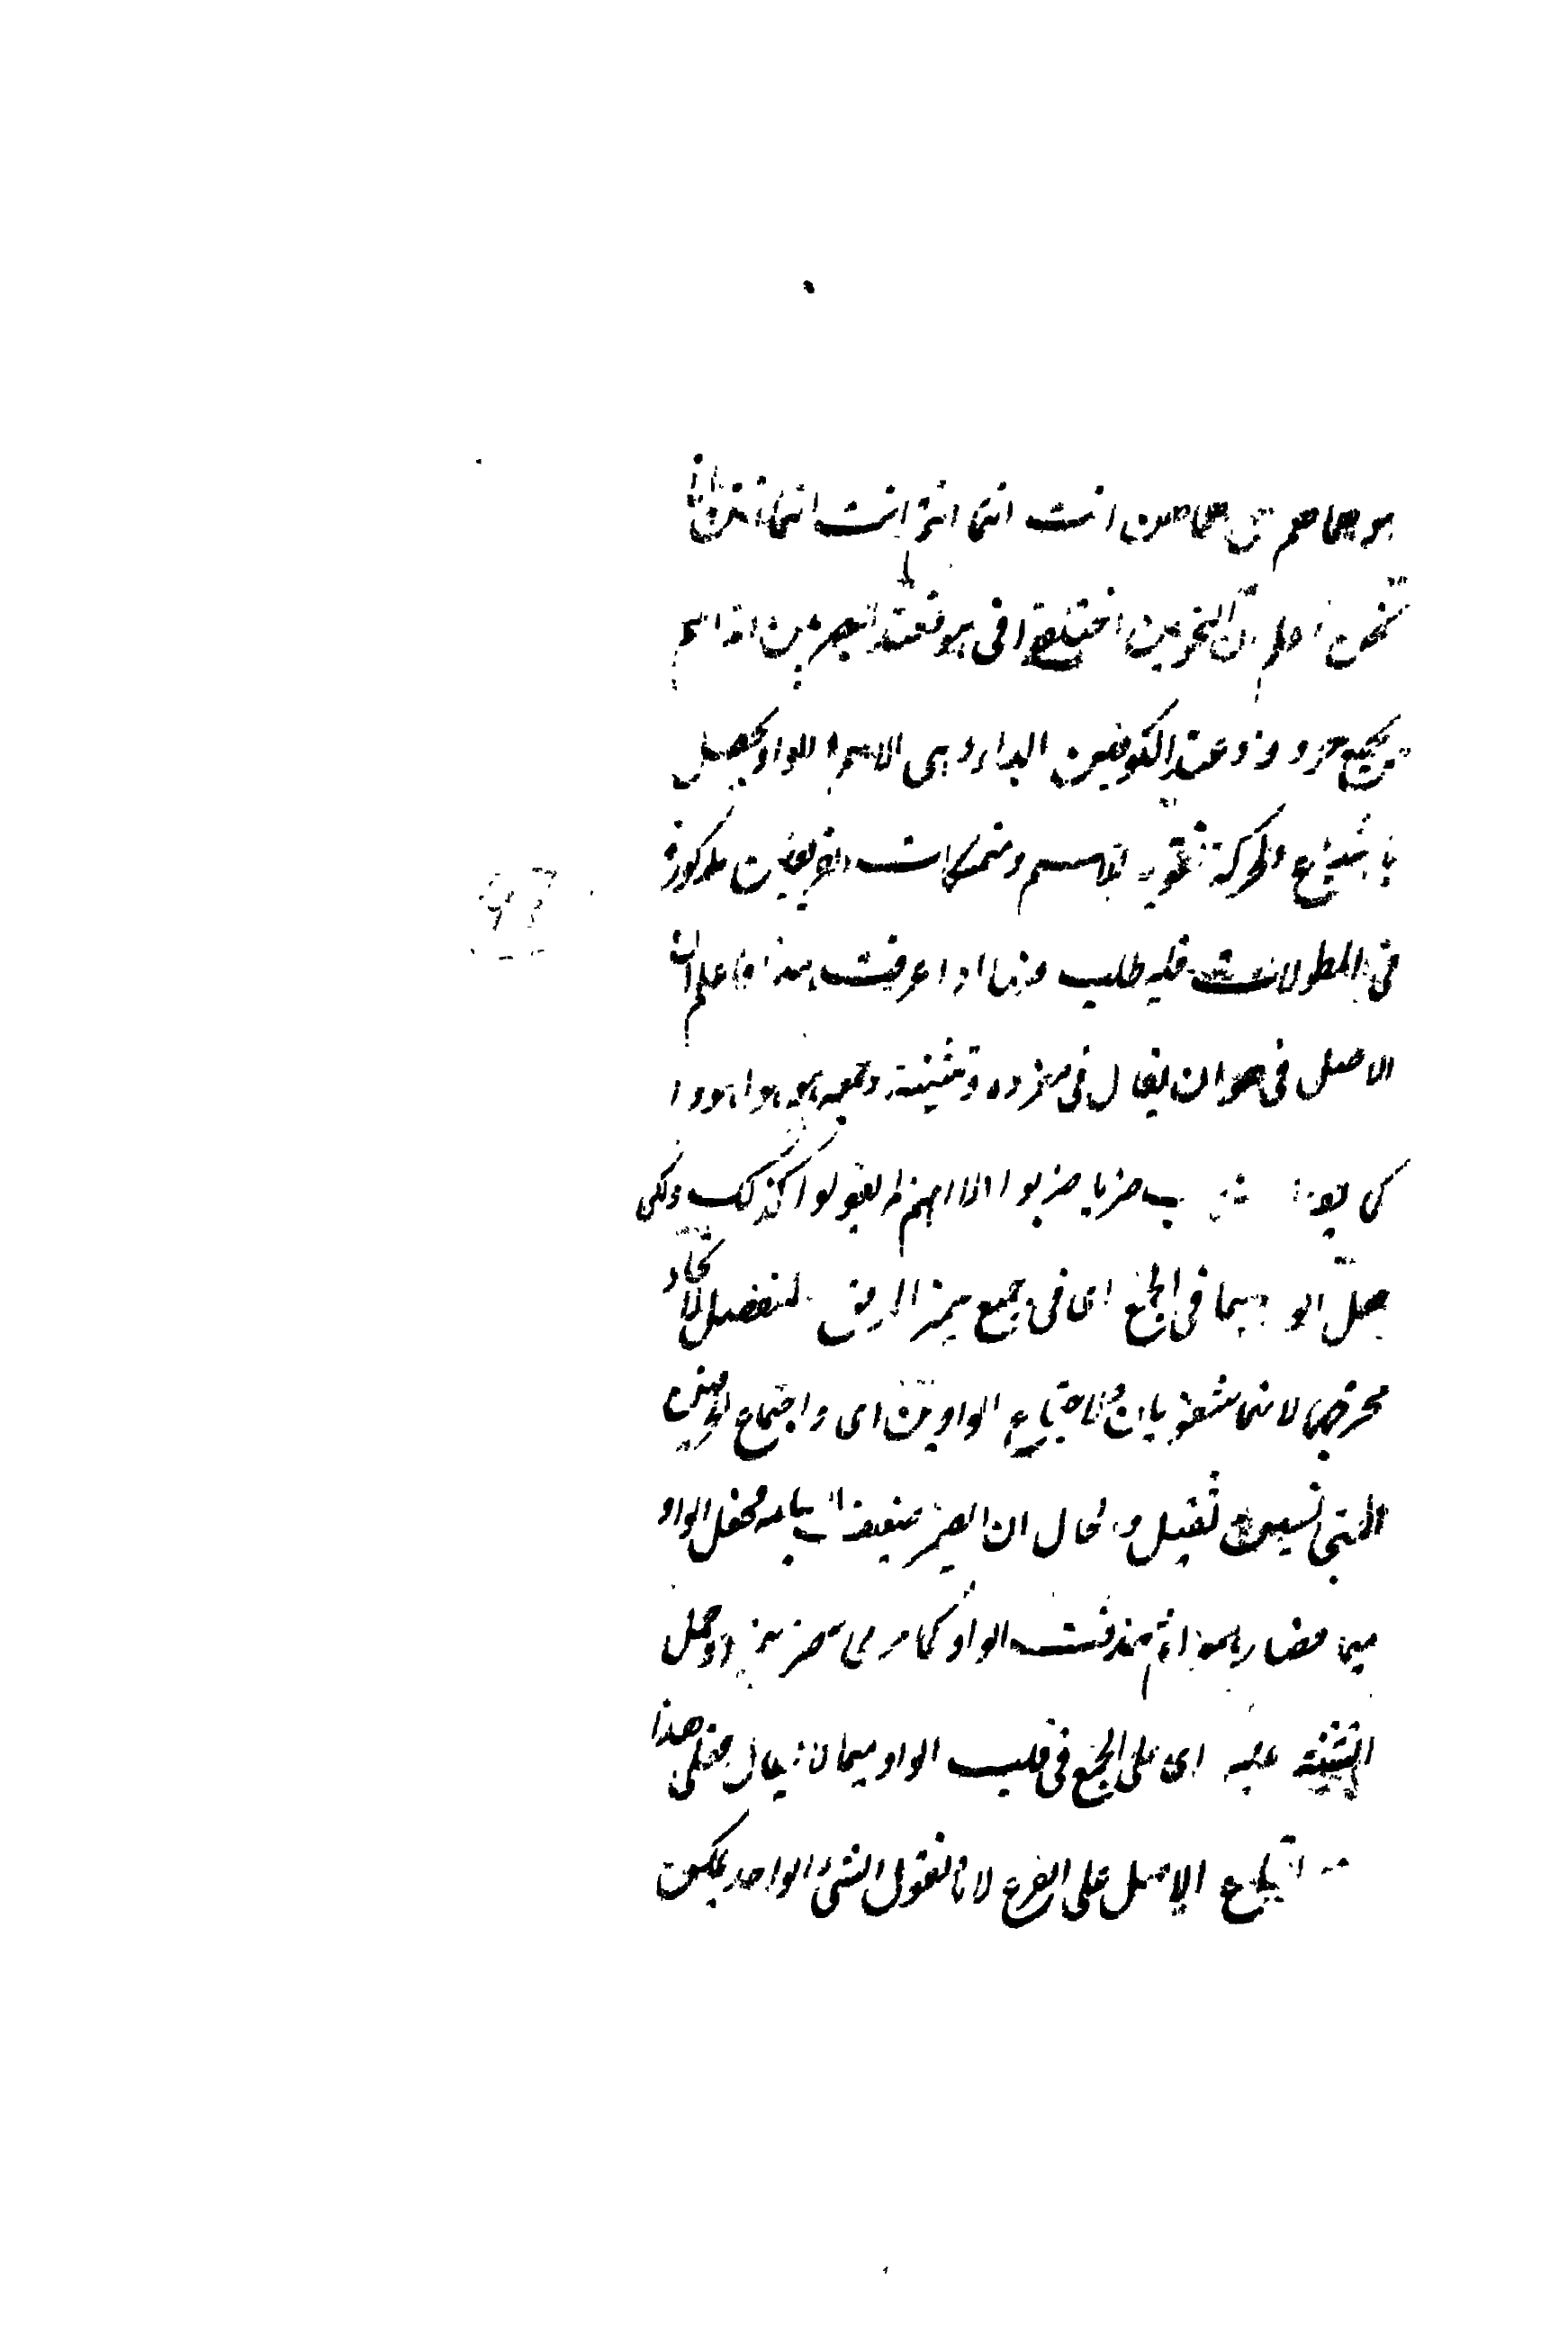 هو هما هم هي هما هن انت انتما انتم انت انتما انتن انا
نحن اعلم ان النحويين اختلفوا في هو فعند البصريين انه اسم
بجميع حروفه وعند الكوفيين الهاء هي الاسم والواو يحصل
باشباع الحركة تقوية للاسم ومتمسكات الفريقين مذكورة
في المطولات فليطلب منها اذا عرفت هذا فاعلم ان
الاصل في هو ان يقال في مفرده وتثنيته وجمعه هو هوا هووا
كما يقال ضرب ضربا ضربوا الا انهم لم يقولوا كذلك ولكن
جعل الواو ميما في الجمع اى في جميع المنفصل لاتحاد
مخرجهما لانهما شفويان ولاجتماع الواوين اى واجتماع الحرفين
ثقيل والحال ان الضمير ضعيف فجعل الواو
ميما فصار هموا ثم حذفت الواو كما مر في ضربتموا وحمل
التثنية عليه اى على الجمع في قلب الواو ميما يقال فعلى هذا
اتباع الاصل على الفرع لانا نقول الشئ الواحد يكون